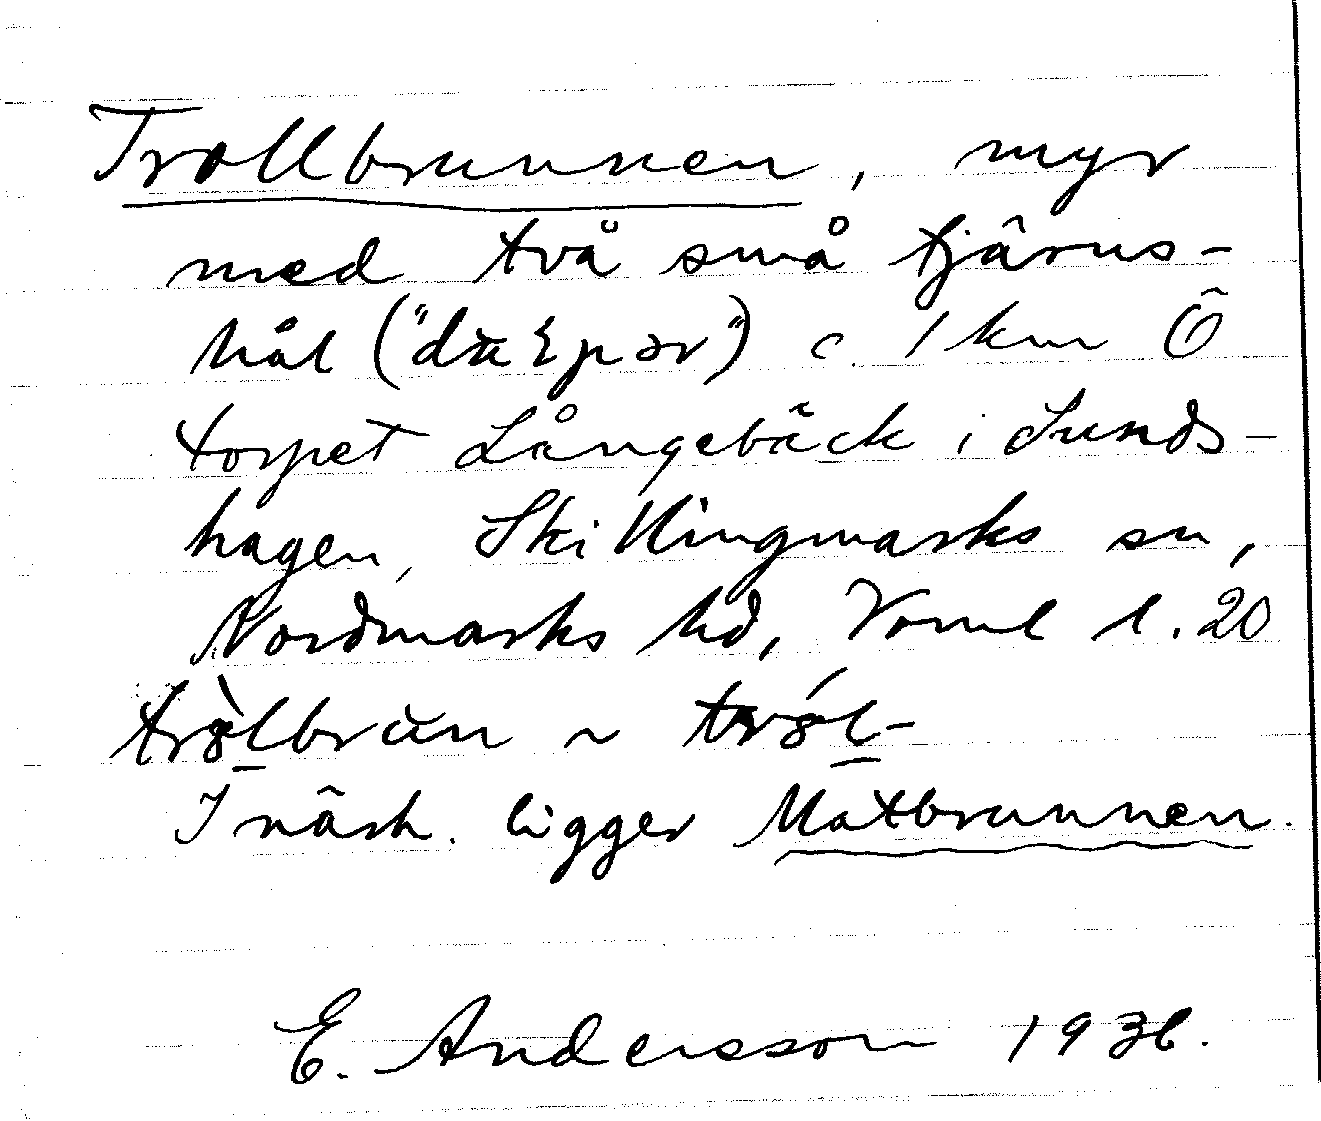 Trollbrunnen, myr
med två små tjärns-
hål ("därpər") c. 1 km Ö
torpet Långebäck i Lunds-
hagen, Skillingmarks sn,
Nordmarks hd, Vrml l. 20
tròlbrun ~ tról-
I närh. ligger Matbrunnen.
E. Andersson 1936.